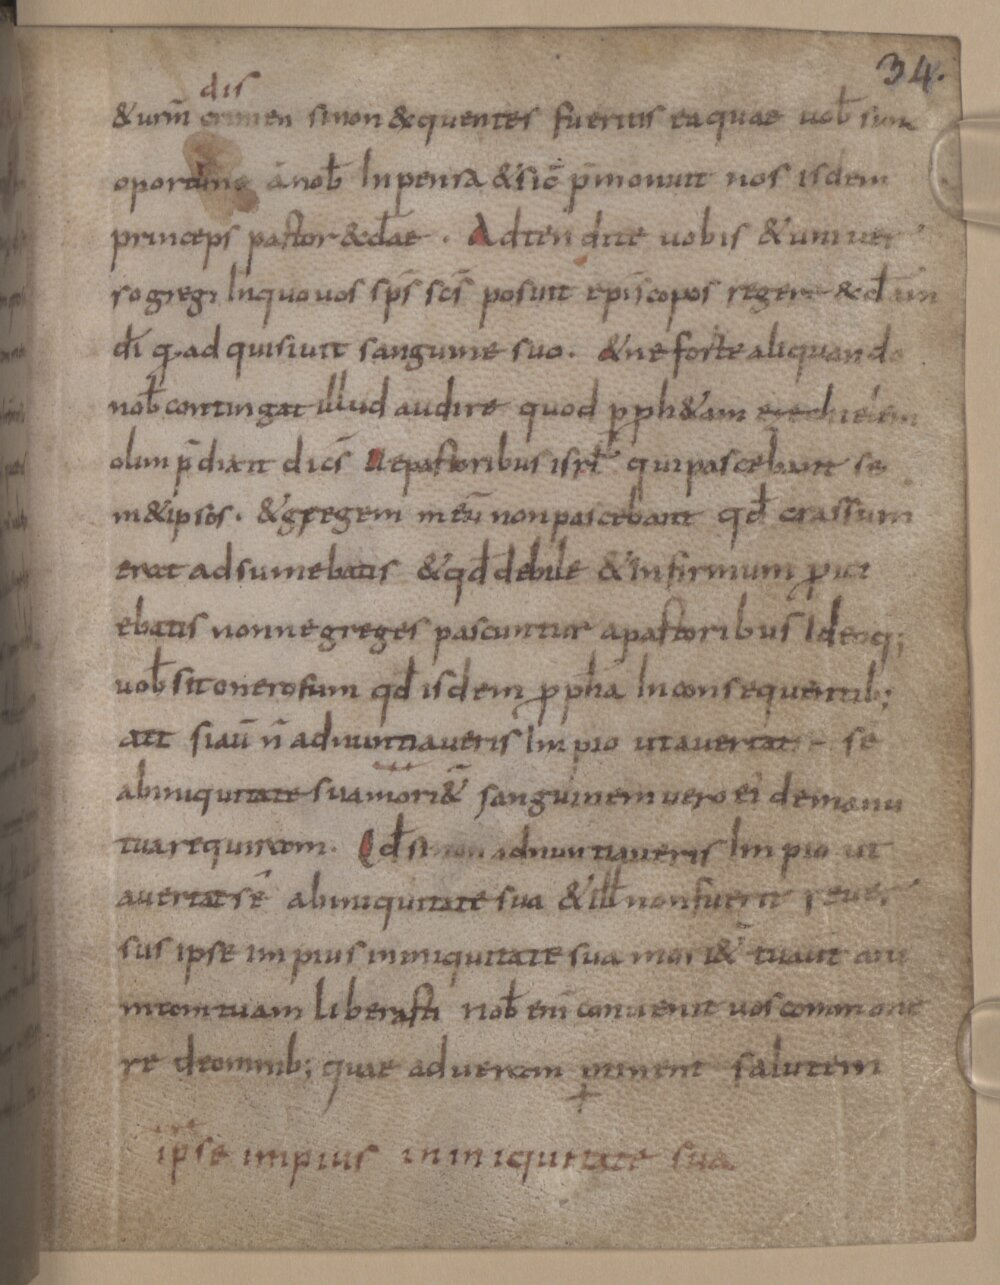 34.
dis
&urm̄ crimen sinon &quentes fueritis ea quae uob̄ sun
oportuna a nob̄ Inpensa &sic̄ p̄monuit nos isdem
princeps pastor &cłae . Adtendite uobis & uniuer
so gregi Inquo uos sp̄s sc̄s posuit episcopos regere
dī q adquisiuit sanguine suo . &ne forte aliquando
nob̄ contingat illud audire quod p ph&am ezechielem
olim p̄dixit dic̄s Uepastoribus isrł qui pascebant se
m&ipsos . &gregem meū non pascebant qđ crassum
erat adsumebatis &qđ debile &Infirmum proici
ebatis nonne greges pascuntur a pastoribus Ideoq;
uob̄ sit onerosum qđ isdem p pha In consequentib;
ait siaū n̄ adnuntiaueris Impio ut auertat se
ab iniquitate sua mori& sanguinem uero ei demanu
tua requiram . Qđ si non adnuntiaueris Impio ut
auertat sē ab iniquitate sua &ill non fuerit reuer
sus ipse impius in iniquitate sua mori& tu aut̄ ani
mam tuam liberasti nob̄ eni conuenit uos commone
re deomnib; quae ad ueram minent salutem
ipse impius in iniquitate sua